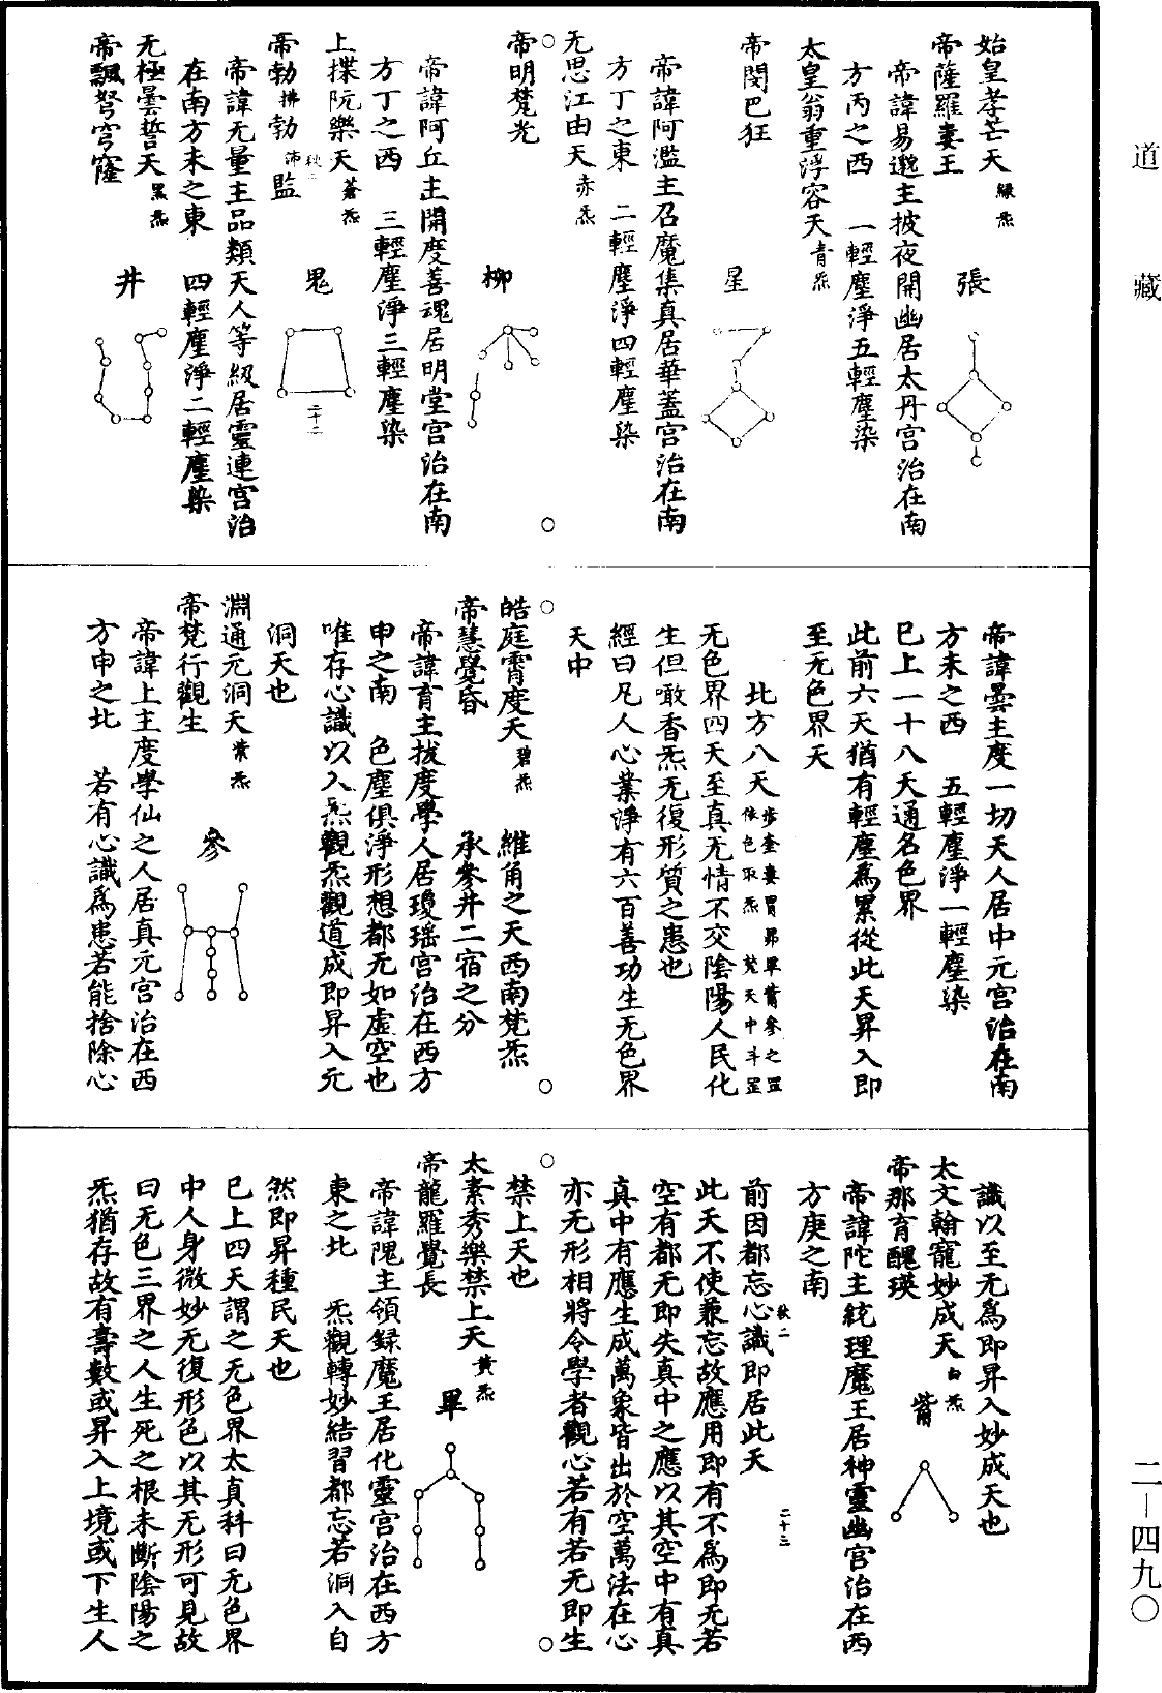 道藏
始皇孝芒天緑炁
帝薩羅婁王
張
帝諱易邈主披夜開幽居太丹宫治在南
方丙之西 一輕塵淨五輕塵染
太皇翁重浮容天青炁
帝閔巴狂
星
帝諱阿濫主召魔集真居華蓋宫治在南
方丁之東 二輕塵淨四輕塵染
无思江由天赤炁
帝明梵光
柳
帝諱阿丘主開度善魂居明堂宫治在南
方丁之西 三輕塵淨三輕塵染
上揲阮樂天蒼炁
鬼
二十二
帝勃勃監
帝諱无量主品類天人等級居靈連宫治
在南方未之東 四輕塵淨二輕塵染
无極曇誓天黑炁
帝飄弩穹窿
井
帝諱曇主度一切天人居中元宫治在南
方未之西 五輕塵淨一輕塵染
巳上一十八天通名色界
此前六天猶有輕塵爲累從此天昇入即
至无色界天
北方八天步奎婁胃昴畢觜參之罡
依色取炁梵天中斗罡
无色界四天至真无情不交陰陽人民化
生但噉香炁无復形質之患也
經曰凡人心業淨有六百善功生无色界
天中
皓庭霄度天碧炁 維角之天西南梵炁
帝慧覺昏 承參井二宿之分
帝諱育主拔度學人居瓊瑶宫治在西方
申之南 色塵俱淨形想都无如虛空也
唯存心識以入炁觀炁觀道成即昇入元
洞天也
淵通元洞天紫炁
帝梵行觀生
參
帝諱上主度學仙之人居真元宫治在西
方申之北 若有心識爲患若能捨除心
識以至无爲即昇入妙成天也
太文翰寵妙成天白炁
帝那育醜瑛
觜
帝諱陀主統理魔王居神靈幽宫治在西
方庚之南
二十三
前因都忘心識即居此天
此天不使兼忘故應用即有不爲即无若
空有都无即失真中之應以其空中有真
真中有應生成萬象皆出於空萬法在心
亦无形相將令學者觀心若有若无即生
禁上天也
太素秀樂禁上天黄炁
帝龍羅覺長
畢
帝諱隗主領録魔王居化靈宫治在西方
東之北 炁觀轉妙結習都忘若洞入自
然即昇種民天也
巳上四天謂之无色界太真科曰无色界
中人身微妙无復形色以其无形可見故
曰无色三界之人生死之根未斷陰陽之
炁猶存故有壽數或昇入上境或下生人
二—四九〇